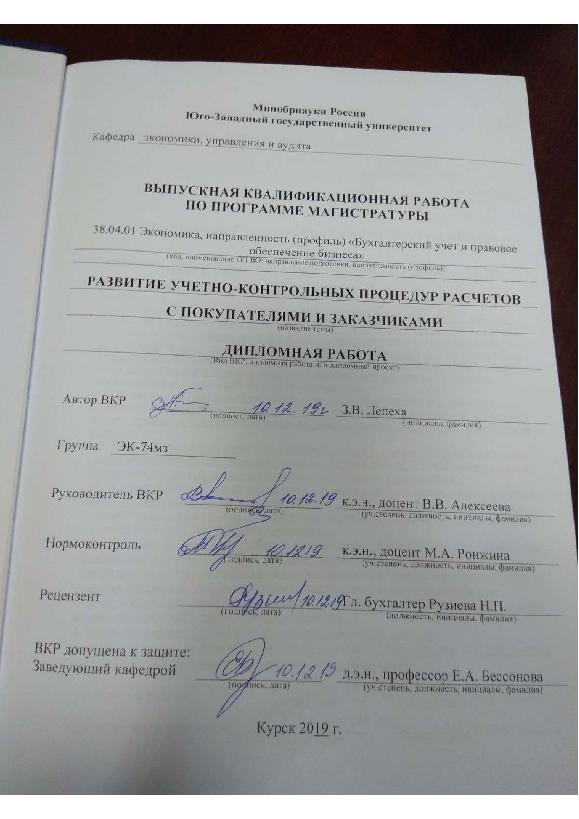 Минобрнауки России
Юго-Западный государственный университет
Кафедра экономики, управления и аудита
ВЫПУСКНАЯ КВАЛИФИКАЦИОННАЯ РАБОТА
ПО ПРОГРАММЕ МАГИСТРАТУРЫ
38.04.01 Экономика, направленность (профиль) «Бухгалтерский учет и правовое
обеспечение бизнеса»
(код, наименование ОП ВО: направление подготовки, направленность (профиль))
РАЗВИТИЕ УЧЕТНО-КОНТРОЛЬНЫХ ПРОЦЕДУР РАСЧЕТОВ
С ПОКУПАТЕЛЯМИ И ЗАКАЗЧИКАМИ
(название темы)
ДИПЛОМНАЯ РАБОТА
(Вид ВКР: дипломная работа или дипломный проект)
Автор ВКР 10.12.19г З.В. Лепеха
(подпись, дата) (инициалы, фамилия)
Группа ЭК-74мз
Руководитель ВКР 10.12.19 к.э.н., доцент В.В. Алексеева
(подпись, дата) (уч.степень, должность, инициалы, фамилия)
Нормоконтроль 10.12.19 к.э.н., доцент М.А. Ронжина
(подпись, дата) (уч.степень, должность, инициалы, фамилия)
Рецензент 10.12.19 Гл. бухгалтер Рузиева Н.П.
(подпись, дата) (должность, инициалы, фамилия)
ВКР допущена к защите:
Заведующий кафедрой 10.12.19 д.э.н., профессор Е.А. Бессонова
(подпись, дата) (уч.степень, должность, инициалы, фамилия)
Курск 2019 г.